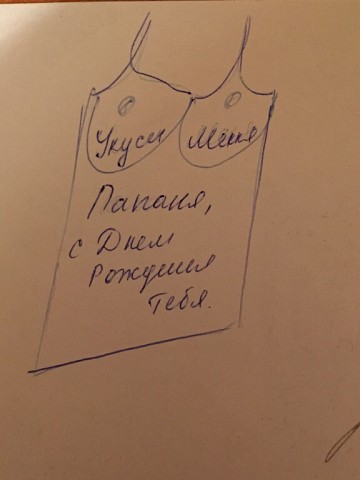 Укуси Меня
Папаня,
с Днем
Рождения
Тебя.